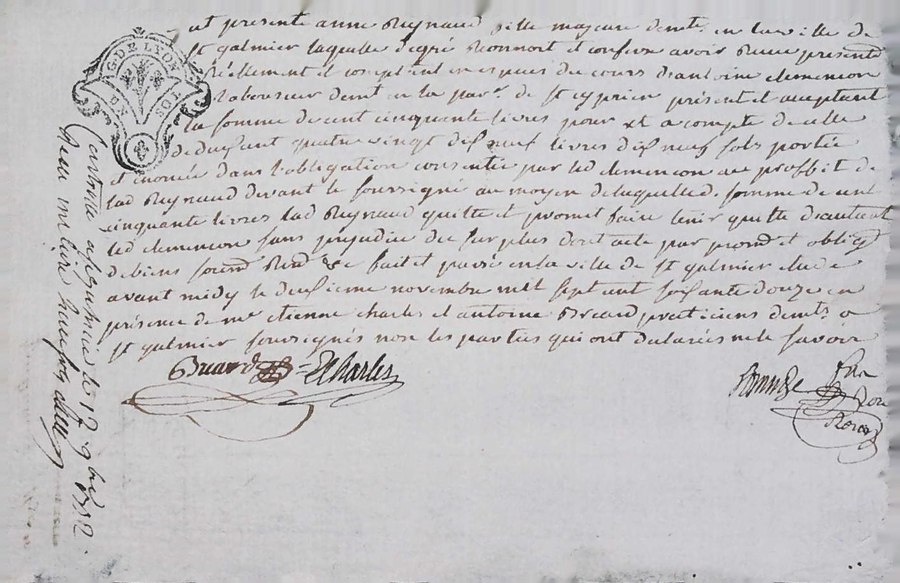 est presente anne Reynaud fille majeure demt. en la ville de
st galmier laquelle de gré Reconnoit et confesse avoir Receu presente
Réellement et comptent en especes du cours d'antoine clemencon
laboureur demt en la parr. de st cyprien présent et acceptant
la somme de cent cinquante livres pour et a compte de celle
de deux cent quatre vingt dix neuf livres dix neuf sols portée
et énoncée dans l'obligation consentie par led clemencon au proffit de
lad Reynaud devant le soussigné au moyen de laquelle d. somme de cent
cinquante livres lad Reynaud quitte et promet faire tenir quitte d'autant
led clemencon sans prejudice du surplus dont acte par promt et obligt
de biens soumd Rend &c fait et passé en la ville de st galmier etude
avant midy le deuxieme novembre mil sept cent soixante douze en
présence de me etienne charles et antoine Bruard praticiens demts a
st galmier soussignés non les parties qui ont declarés ne le savoir
Bruard Charles
GDE LYON
SOLS
a st galmier le 12 9bre 1772.
Receu